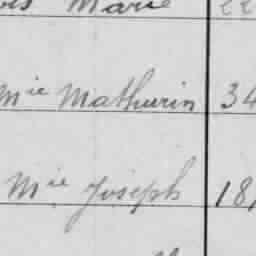 Marie 22
Mie Mathurin 34
Mie Joseph 18